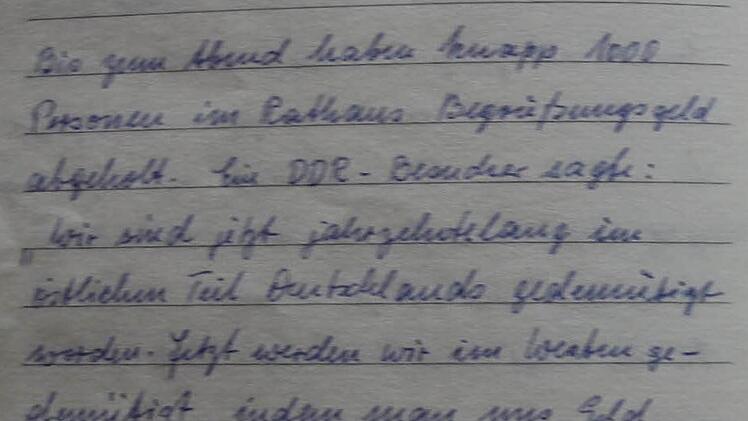 Bis zum Abend haben knapp 1000
Personen im Rathaus Begrüßungsgeld
abgeholt. Ein DDR-Besucher sagte:
"Wir sind jetzt jahrzehntelang im
östlichen Teil Deutschlands gedemütigt
worden. Jetzt werden wir im Westen ge-
demütigt indem man uns Geld